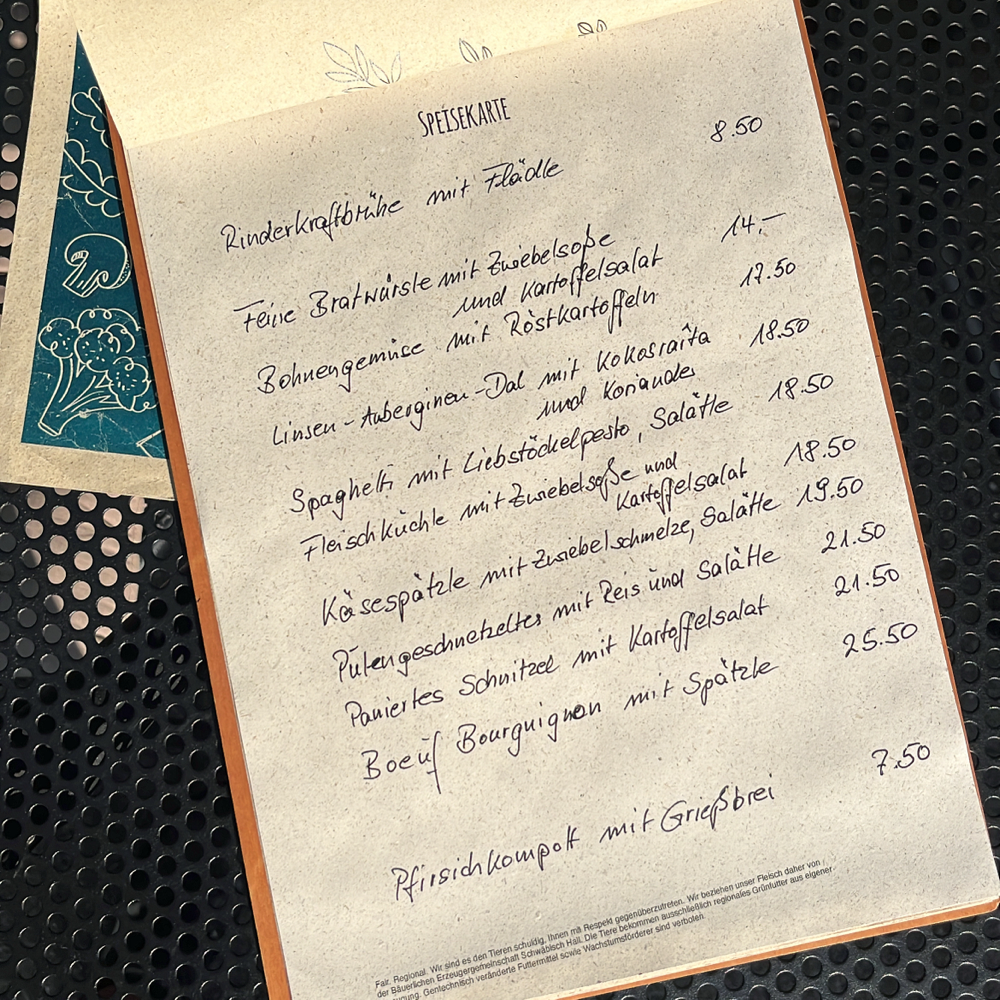 SPEISEKARTE
Rinderkraftbrühe mit Flädle 8.50
Feine Bratwürste mit Zwiebelsoße 14,–
und Kartoffelsalat
Bohnengemüse mit Röstkartoffeln 17.50
Linsen-Auberginen-Dal mit Kokosraita 18.50
und Koriander
Spaghetti mit Liebstöckelpesto, Salätle 18.50
Fleischküchle mit Zwiebelsoße und 18.50
Kartoffelsalat
Käsespätzle mit Zwiebelschmelze, Salätle 19.50
Putengeschnetzeltes mit Reis und Salätle 21.50
Paniertes Schnitzel mit Kartoffelsalat 21.50
Boeuf Bourguignon mit Spätzle 25.50
Pfirsichkompott mit Grießbrei 7.50
Fair. Regional. Wir sind es den Tieren schuldig, Ihnen mit Respekt gegenüberzutreten. Wir beziehen unser Fleisch daher von
der Bäuerlichen Erzeugergemeinschaft Schwäbisch Hall. Die Tiere bekommen ausschließlich regionales Grünfutter aus eigener
Gentechnisch veränderte Futtermittel sowie Wachstumsförderer sind verboten.